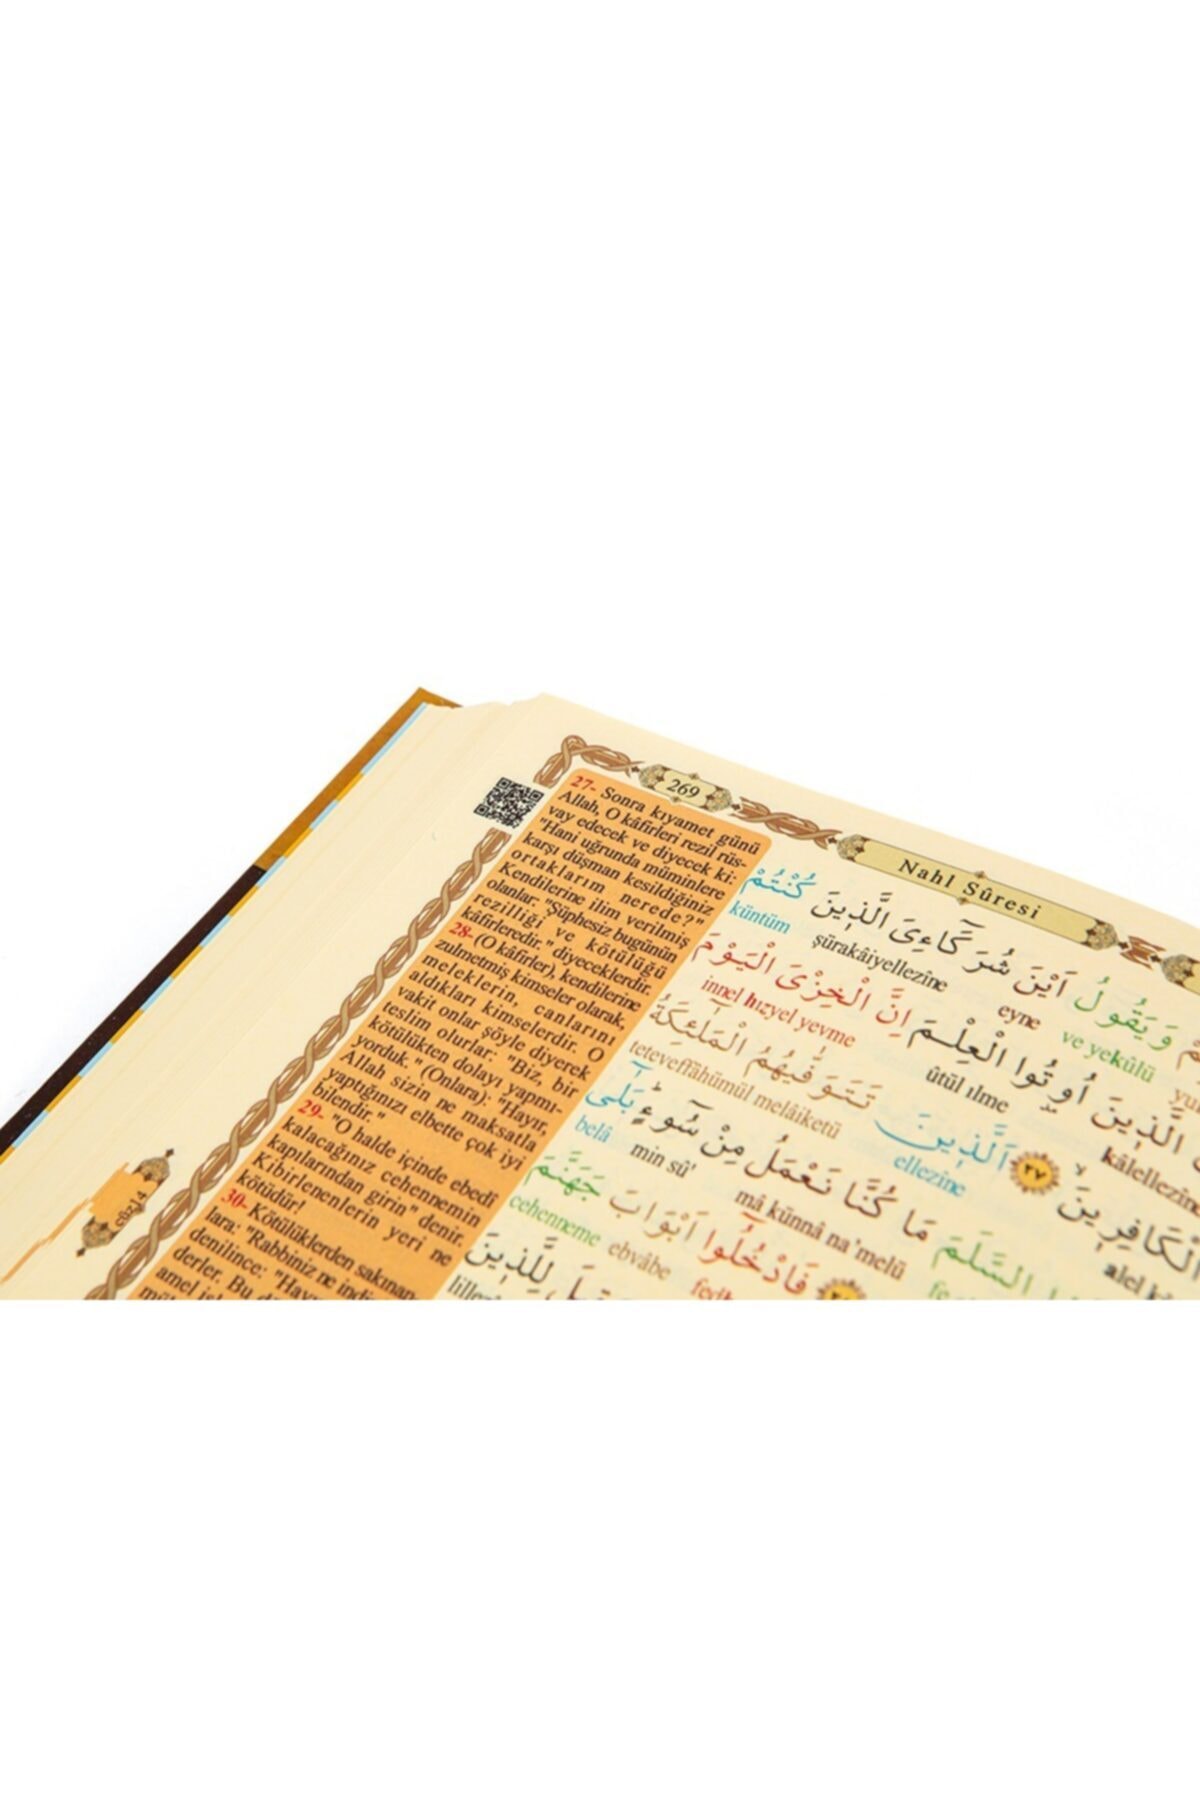 269
Nahl Sûresi
27- Sonra kıyamet günü
Allah, O kâfirleri rezil rüs-
vay edecek ve diyecek ki:
"Hani uğrunda müminlere
karşı düşman kesildiğiniz
ortaklarım nerede?"
Kendilerine ilim verilmiş
olanlar: "Şüphesiz bugünün
rezilliği ve kötülüğü
kâfirleredir." diyeceklerdir.
28- (O kâfirler), kendilerine
zulmetmiş kimseler olarak,
meleklerin, canlarını
aldıkları kimselerdir. O
vakit onlar şöyle diyerek
teslim olurlar: "Biz, bir
kötülükten dolayı yapmı-
yorduk." (Onlara): "Hayır,
Allah sizin ne maksatla
yaptığınızı elbette çok iyi
bilendir."
29- "O halde içinde ebedî
kalacağınız cehennemin
kapılarından girin" denir.
Kibirlenenlerin yeri ne
kötüdür!
30- Kötülüklerden sakınan-
lara: "Rabbiniz ne indi
denilince: "Hay
derler. Bu
amel
cüz14
وَيَقُولُ اَيْنَ شُرَكَٓاءِىَ الَّذِينَ كُنْتُمْ
ve yekûlü eyne şürakâiyellezîne küntüm
الَّذِينَ اُوتُوا الْعِلْمَ اِنَّ الْخِزْىَ الْيَوْمَ
kâlellezîne ûtül ılme innel hızyel yevme
الْكَافِرِينَ ٢٧ اَلَّذِينَ تَتَوَفّٰيهُمُ الْمَلٰٓئِكَةُ
ellezîne teteveffâhümül melâiketü
السَّلَمَ مَا كُنَّا نَعْمَلُ مِنْ سُٓوءٍ بَلٰٓى
mâ künnâ na'melü min sû' belâ
فَادْخُلُٓوا اَبْوَابَ جَهَنَّمَ
ebvâbe cehenneme
لِلَّذِينَ